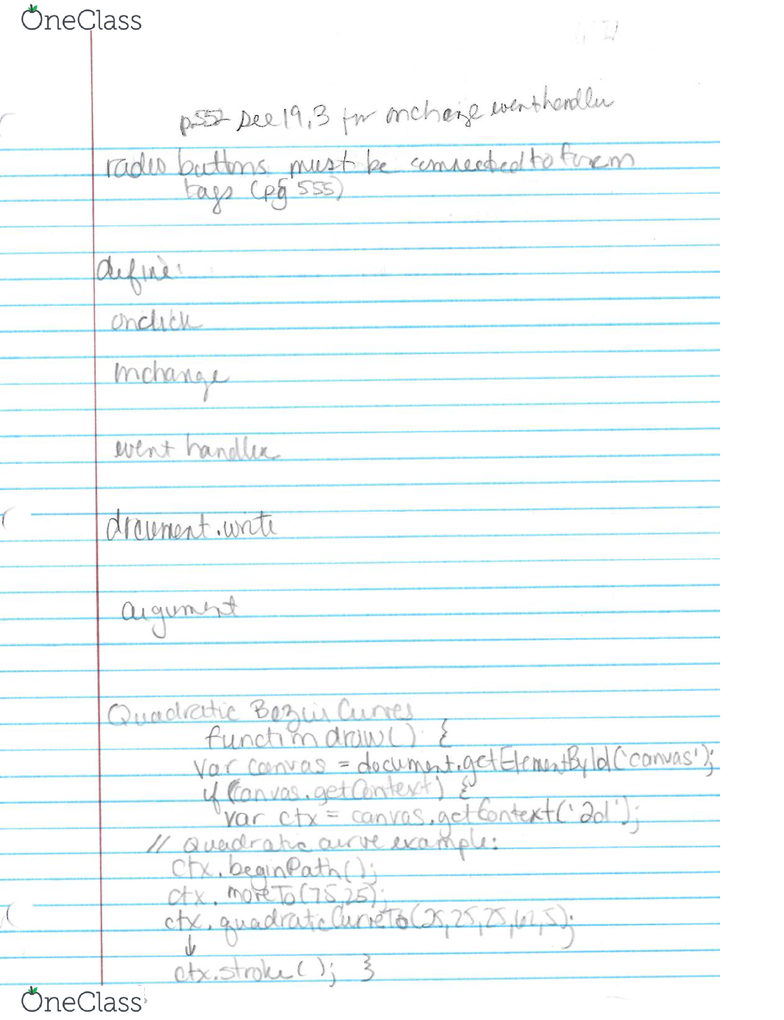 OneClass
p552 see 19,3 for onchange eventhandler
radio buttons must be connected to form
tags (pg 555)
define:
onclick
onchange
event handler
document.write
argument
Quadratic Bezier Curves
function draw() {
var canvas = document.getElementById('canvas');
if (canvas.getContext) {
var ctx = canvas.getContext('2d');
// Quadratic curve example:
ctx.beginPath();
ctx.moveTo(75,25);
ctx.quadraticCurveTo(25,25,25,62,5);
↓
ctx.stroke(); }
OneClass